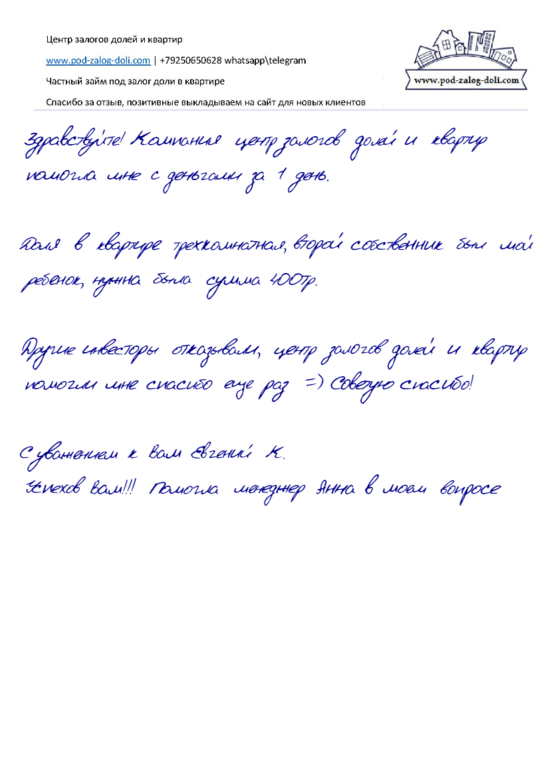 Центр залогов долей и квартир
www.pod-zalog-doli.com | +79250650628 whatsapp\telegram
Частный займ под залог доли в квартире
Спасибо за отзыв, позитивные выкладываем на сайт для новых клиентов
www.pod-zalog-doli.com
Здравствуйте! Компания центр залогов долей и квартир
помогла мне с деньгами за 1 день.
Доля в квартире трехкомнатная, второй собственник был мой
ребенок, нужна была сумма 400тр.
Другие инвесторы отказывали, центр залогов долей и квартир
помогли мне спасибо еще раз =) Советую спасибо!
С уважением к вам Евгений К.
Успехов вам!!! Помогла менеджер Анна в моем вопросе